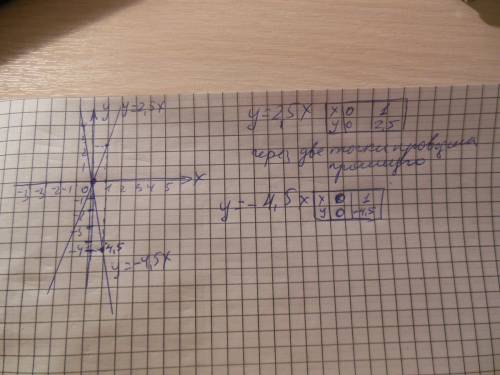 y
y=2,5x
3
2
1
x
-3 -3 -2 -1 0 1 2 3 4 5
-1
-2
-3
-4
4,5
y=-4,5x
y=2,5x
x 0 1
y 0 2,5
через две точки проводим
прямую
y=-4,5x
x 0 1
y 0 -4,5